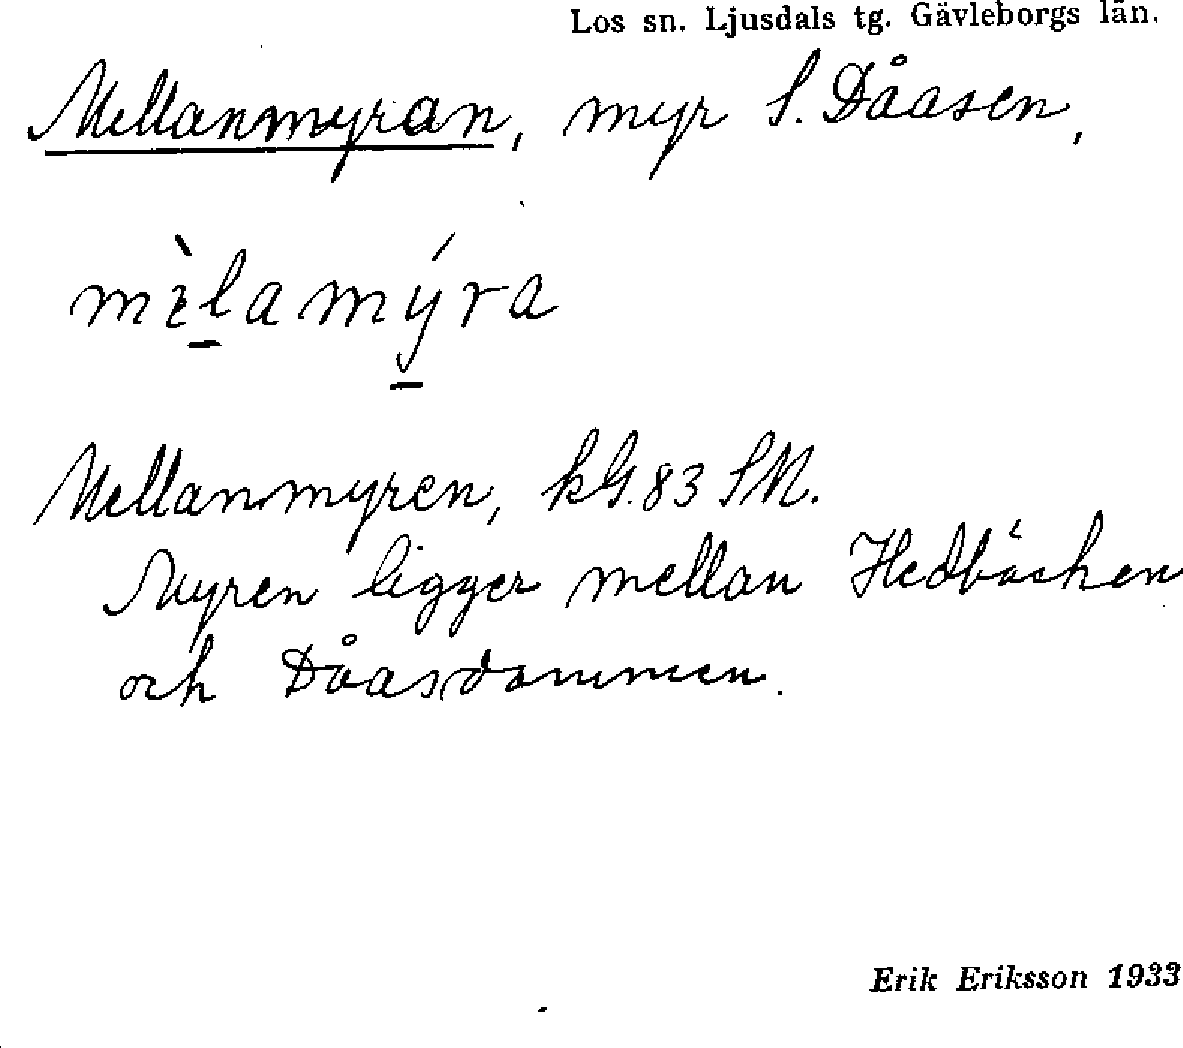 Los sn. Ljusdals tg. Gävleborgs län.
Mellanmyran, myr S. Dåasen,
mèlamýra
Mellanmyren, kG. 83 SM.
Myren ligger mellan Hedbäcken
och Dåasdammen.
Erik Eriksson 1933